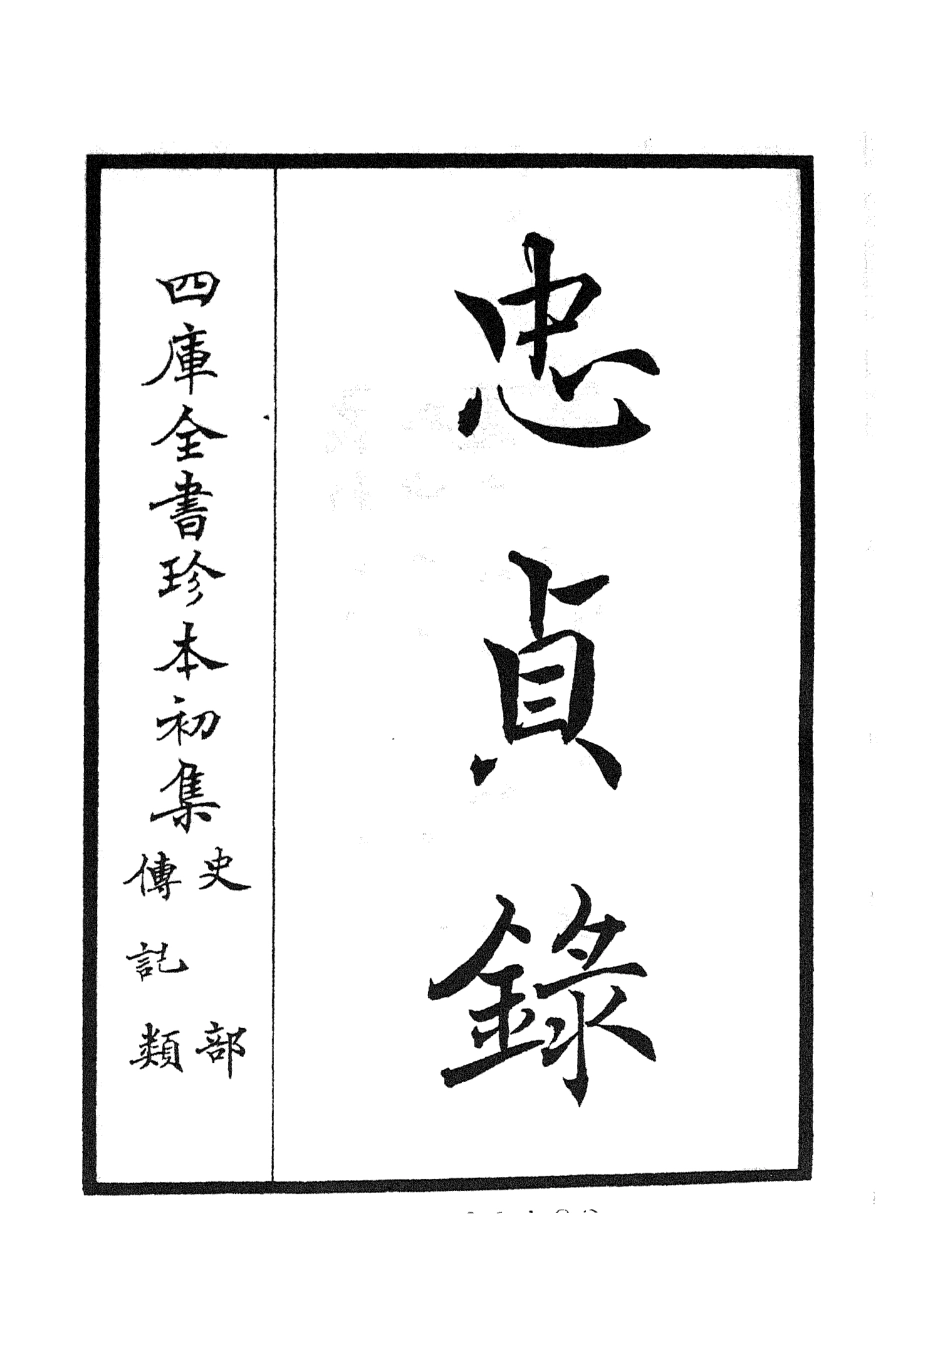 忠貞錄
四庫全書珍本初集
史部
傳記類